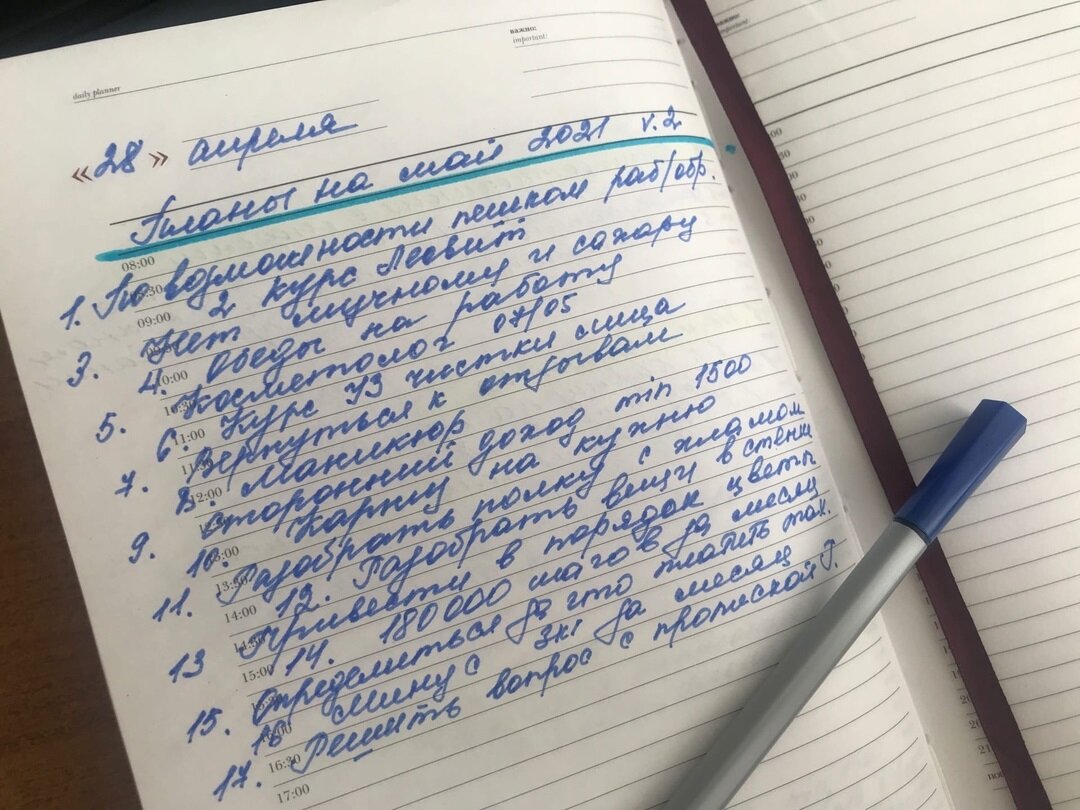 важно:
important:
daily planner
«28» апреля
Планы на май 2021 v.2
08:00
1. По возможности пешком раб/обр.
2 курс Лесвит
09:00
3. Нет мучному и сахару
4. Обеды на работу
10:00
5. Косметолог 07/05
6. Курс УЗ чистки лица
11:00
7. Вернуться к отзывам
8. Маникюр
12:00
9. Сторонний доход min 1500
10. на кухню
13:00
11. Разобрать полку с хламом
13:30
12. Разобрать вещи в стенке
14:00
13 Привести в порядок цветы
14. 180000 шагов за месяц
15:00
15. Определиться за что платить
16 минус 3кг за месяц
16:30
17. Решить вопрос с пропиской Р.
17:00